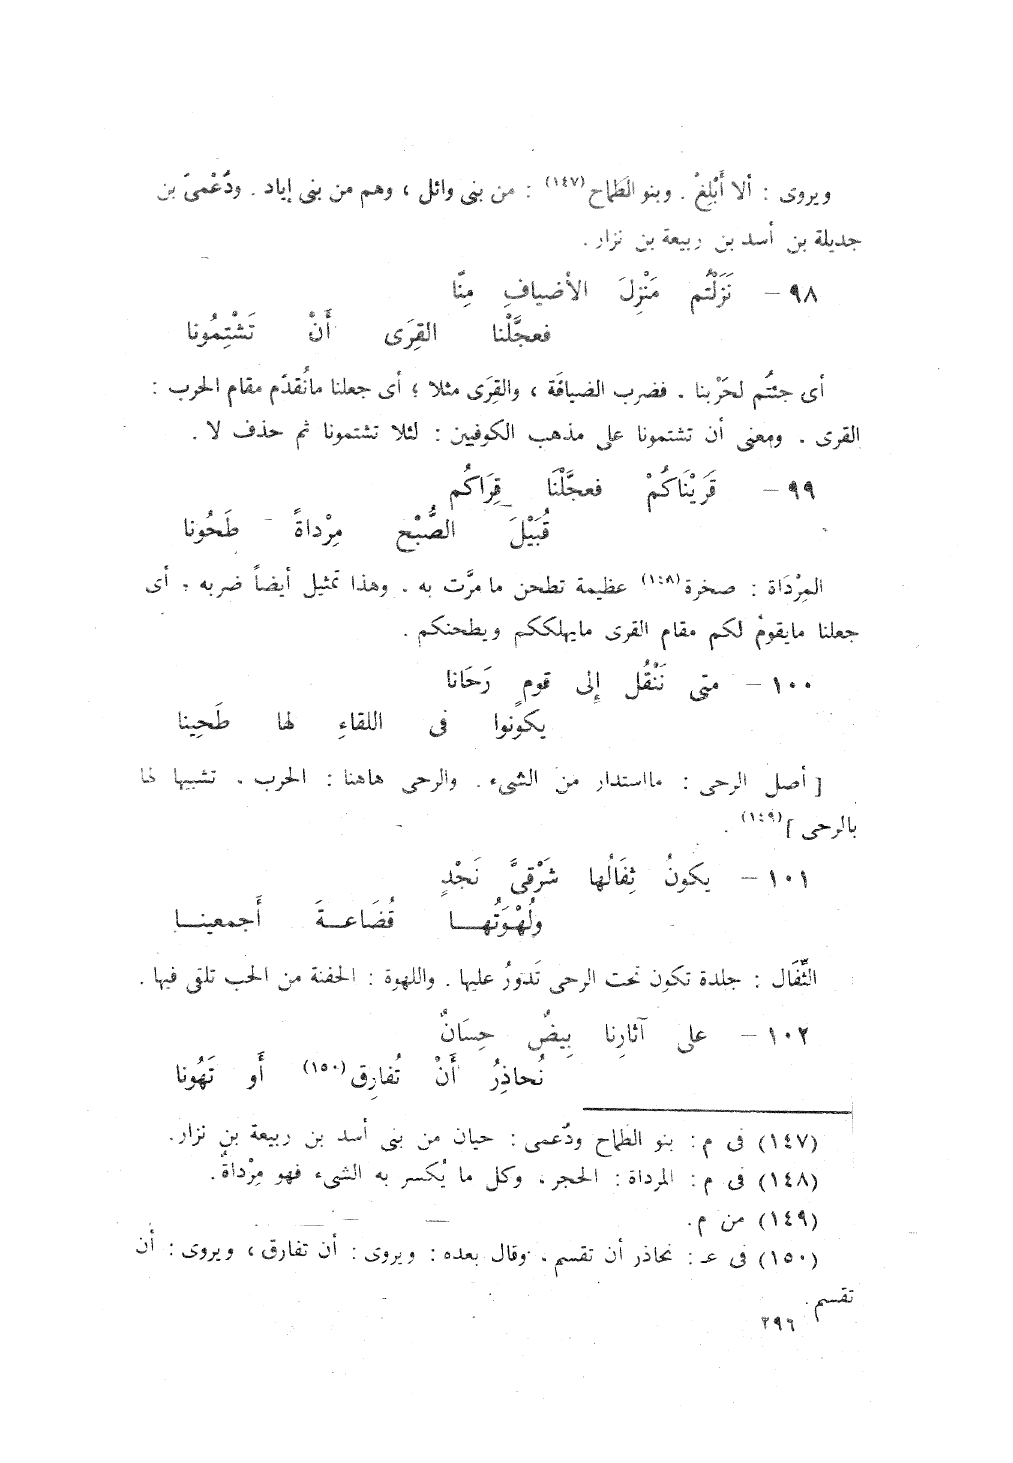 ويروى : ألا أَبْلِغْ . وبنو الطَماح(١٤٧) : من بنى وائل ، وهم من بنى إياد . ودُعْمىّ بن
جديلة بن أسد بن ربيعة بن نزار .
٩٨ – نَزَلْتُم مَنْزِلَ الأضيافِ مِنّا
فعجَّلْنا القِرَى أَنْ تَشْتِمُونا
أى جئتُم لحَرْبنا . فضرب الضيافَة ، والقِرَى مثلا ؛ أى جعلنا مانُقدّم مقام الحرب :
القرى . ومعنى أن تشتمونا على مذهب الكوفيين : لئلا تشتمونا ثم حذف لا .
٩٩ – قَرَيْنَاكُمْ فعجَّلْنَا قِرَاكُم
قُبَيْلَ الصُّبْح مِرْداةً طَحُونا
المِرْدَاة : صخرة(١٤٨) عظيمة تطحن ما مرَّت به . وهذا تمثيل أيضاً ضربه ، أى
جعلنا مايقومُ لكم مقام القرى مايهلككم ويطحنكم .
١٠٠ – متى نَنْقُل إِلى قومٍ رَحَانا
يكونوا فى اللقاءِ لها طَحِينا
[ أصل الرحى : مااستدار من الشىء . والرحى هاهنا : الحرب . تشبيها لها
بالرحى ](١٤٩) .
١٠١ – يكونُ ثِفَالُها شَرْقىَّ نَجْدٍ
ولُهْوَتُهـــا قُضَاعــةَ أَجمعينــا
الثِّفَال : جلدة تكون تحت الرحى تَدورُ عليها . واللهوة : الحفنة من الحب تلقى فيها .
١٠٢ – على آثارِنا بِيضٌ حِسَانٌ
نُحاذِرُ أَنْ تُفارِق(١٥٠) أَو تَهُونا
(١٤٧) فى م : بنو الطماح ودُعمى : حيان من بنى أسد بن ربيعة بن نزار .
(١٤٨) فى م : المرداة : الحجر . وكل ما يُكسر به الشىء فهو مِرْداةٌ .
(١٤٩) من م .
(١٥٠) فى عـ : نحاذر أن تقسم . وقال بعده : ويروى : أن تفارق ، ويروى : أن
تقسم .
٢٩٦